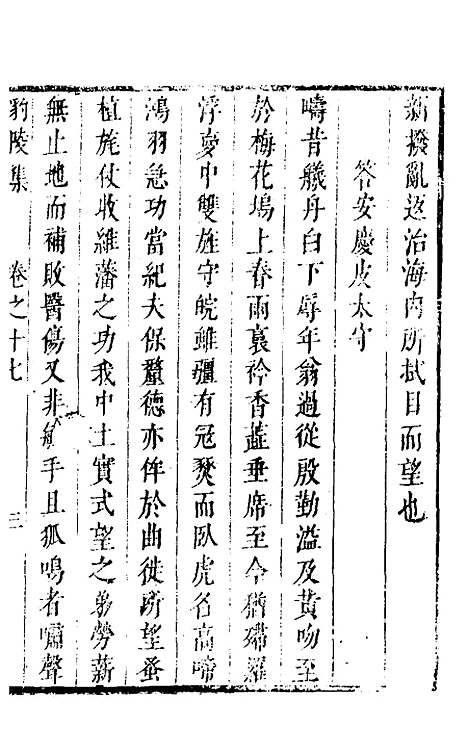 新撥亂返治海內所拭目而望也
答安慶皮太守
疇昔艤舟白下辱年翁過從殷勤溢及黃吻至
於梅花塢上春雨裏衿香蔬垂席至今猶殢羅
浮夢中雙旌守皖雖疆有冠燹而臥虎名高啼
鴻羽急功當紀夫保釐德亦侔於曲徙所望蚤
植旄仗收維藩之功我中土實式望之弟勞薪
無止地而補敗醫傷又非手且狐鳴者嘯聲
豹陵集 卷之十七 三